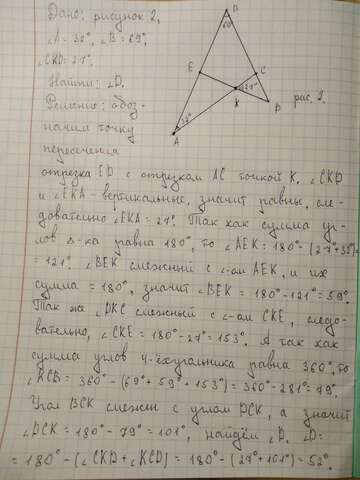 Дано: рисунок 2,
∠A = 32°, ∠B = 69°,
∠CKD = 27°.
Найти: ∠D.
Решение: обоз-
начим точку
пересечения
B
69°
E
C
K
27°
D
рис 2.
32°
A
отрезка ED с отрезком AC точкой K. ∠CKD
и ∠EKA - вертикальные, значит равны, сле-
довательно ∠EKA = 27°. Так как сумма уг-
лов Δ-ка равна 180°, то ∠AEK = 180° - (27°+32°)
= 121°. ∠BEK смежный с ∠-ом AEK, и их
сумма = 180°, значит ∠BEK = 180° - 121° = 59°.
Так же ∠DKC смежный с ∠-ом CKE, следо-
вательно, ∠CKE = 180° - 27° = 153°. А так как
сумма углов 4-ёхугольника равна 360°, то
∠KCB = 360° - (69° + 59° + 153°) = 360° - 281° = 79°.
Угол BCK смежн с углом DCK, а значит
∠DCK = 180° - 79° = 101°, найдём ∠D. ∠D =
= 180° - (∠CKD + ∠KCD) = 180° - (27° + 101°) = 52°.